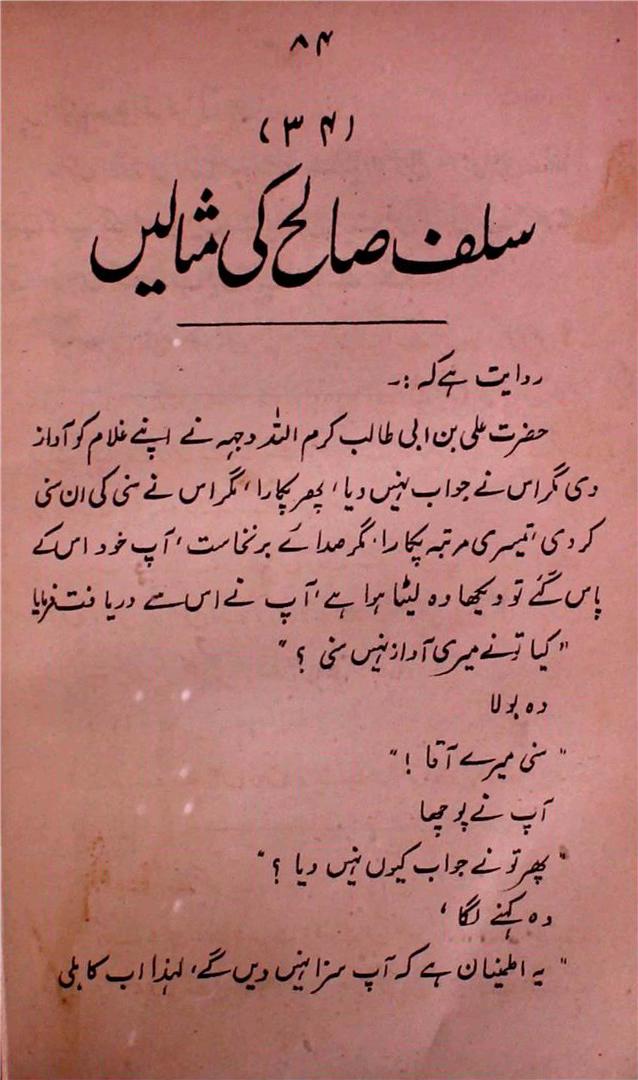 ۸۴
(۳۴)
سلف صالح کی مثالیں
روایت ہے کہ :۔
حضرت علی بن ابی طالب کرم اللہ وجہہ نے اپنے غلام کو آواز
دی مگر اس نے جواب نہیں دیا، پھر پکارا، مگر اس نے سنی کی ان سنی
کر دی، تیسری مرتبہ پکارا، مگر صدائے برنخاست، آپ خود اس کے
پاس گئے تو دیکھا وہ لیٹا ہوا ہے، آپ نے اس سے دریافت فرمایا
"کیا تو نے میری آواز نہیں سنی ؟"
وہ بولا
"سنی میرے آقا !"
آپ نے پوچھا
"پھر تو نے جواب کیوں نہیں دیا ؟"
وہ کہنے لگا،
"یہ اطمینان ہے کہ آپ سزا نہیں دیں گے، لہذا اب کاہلی